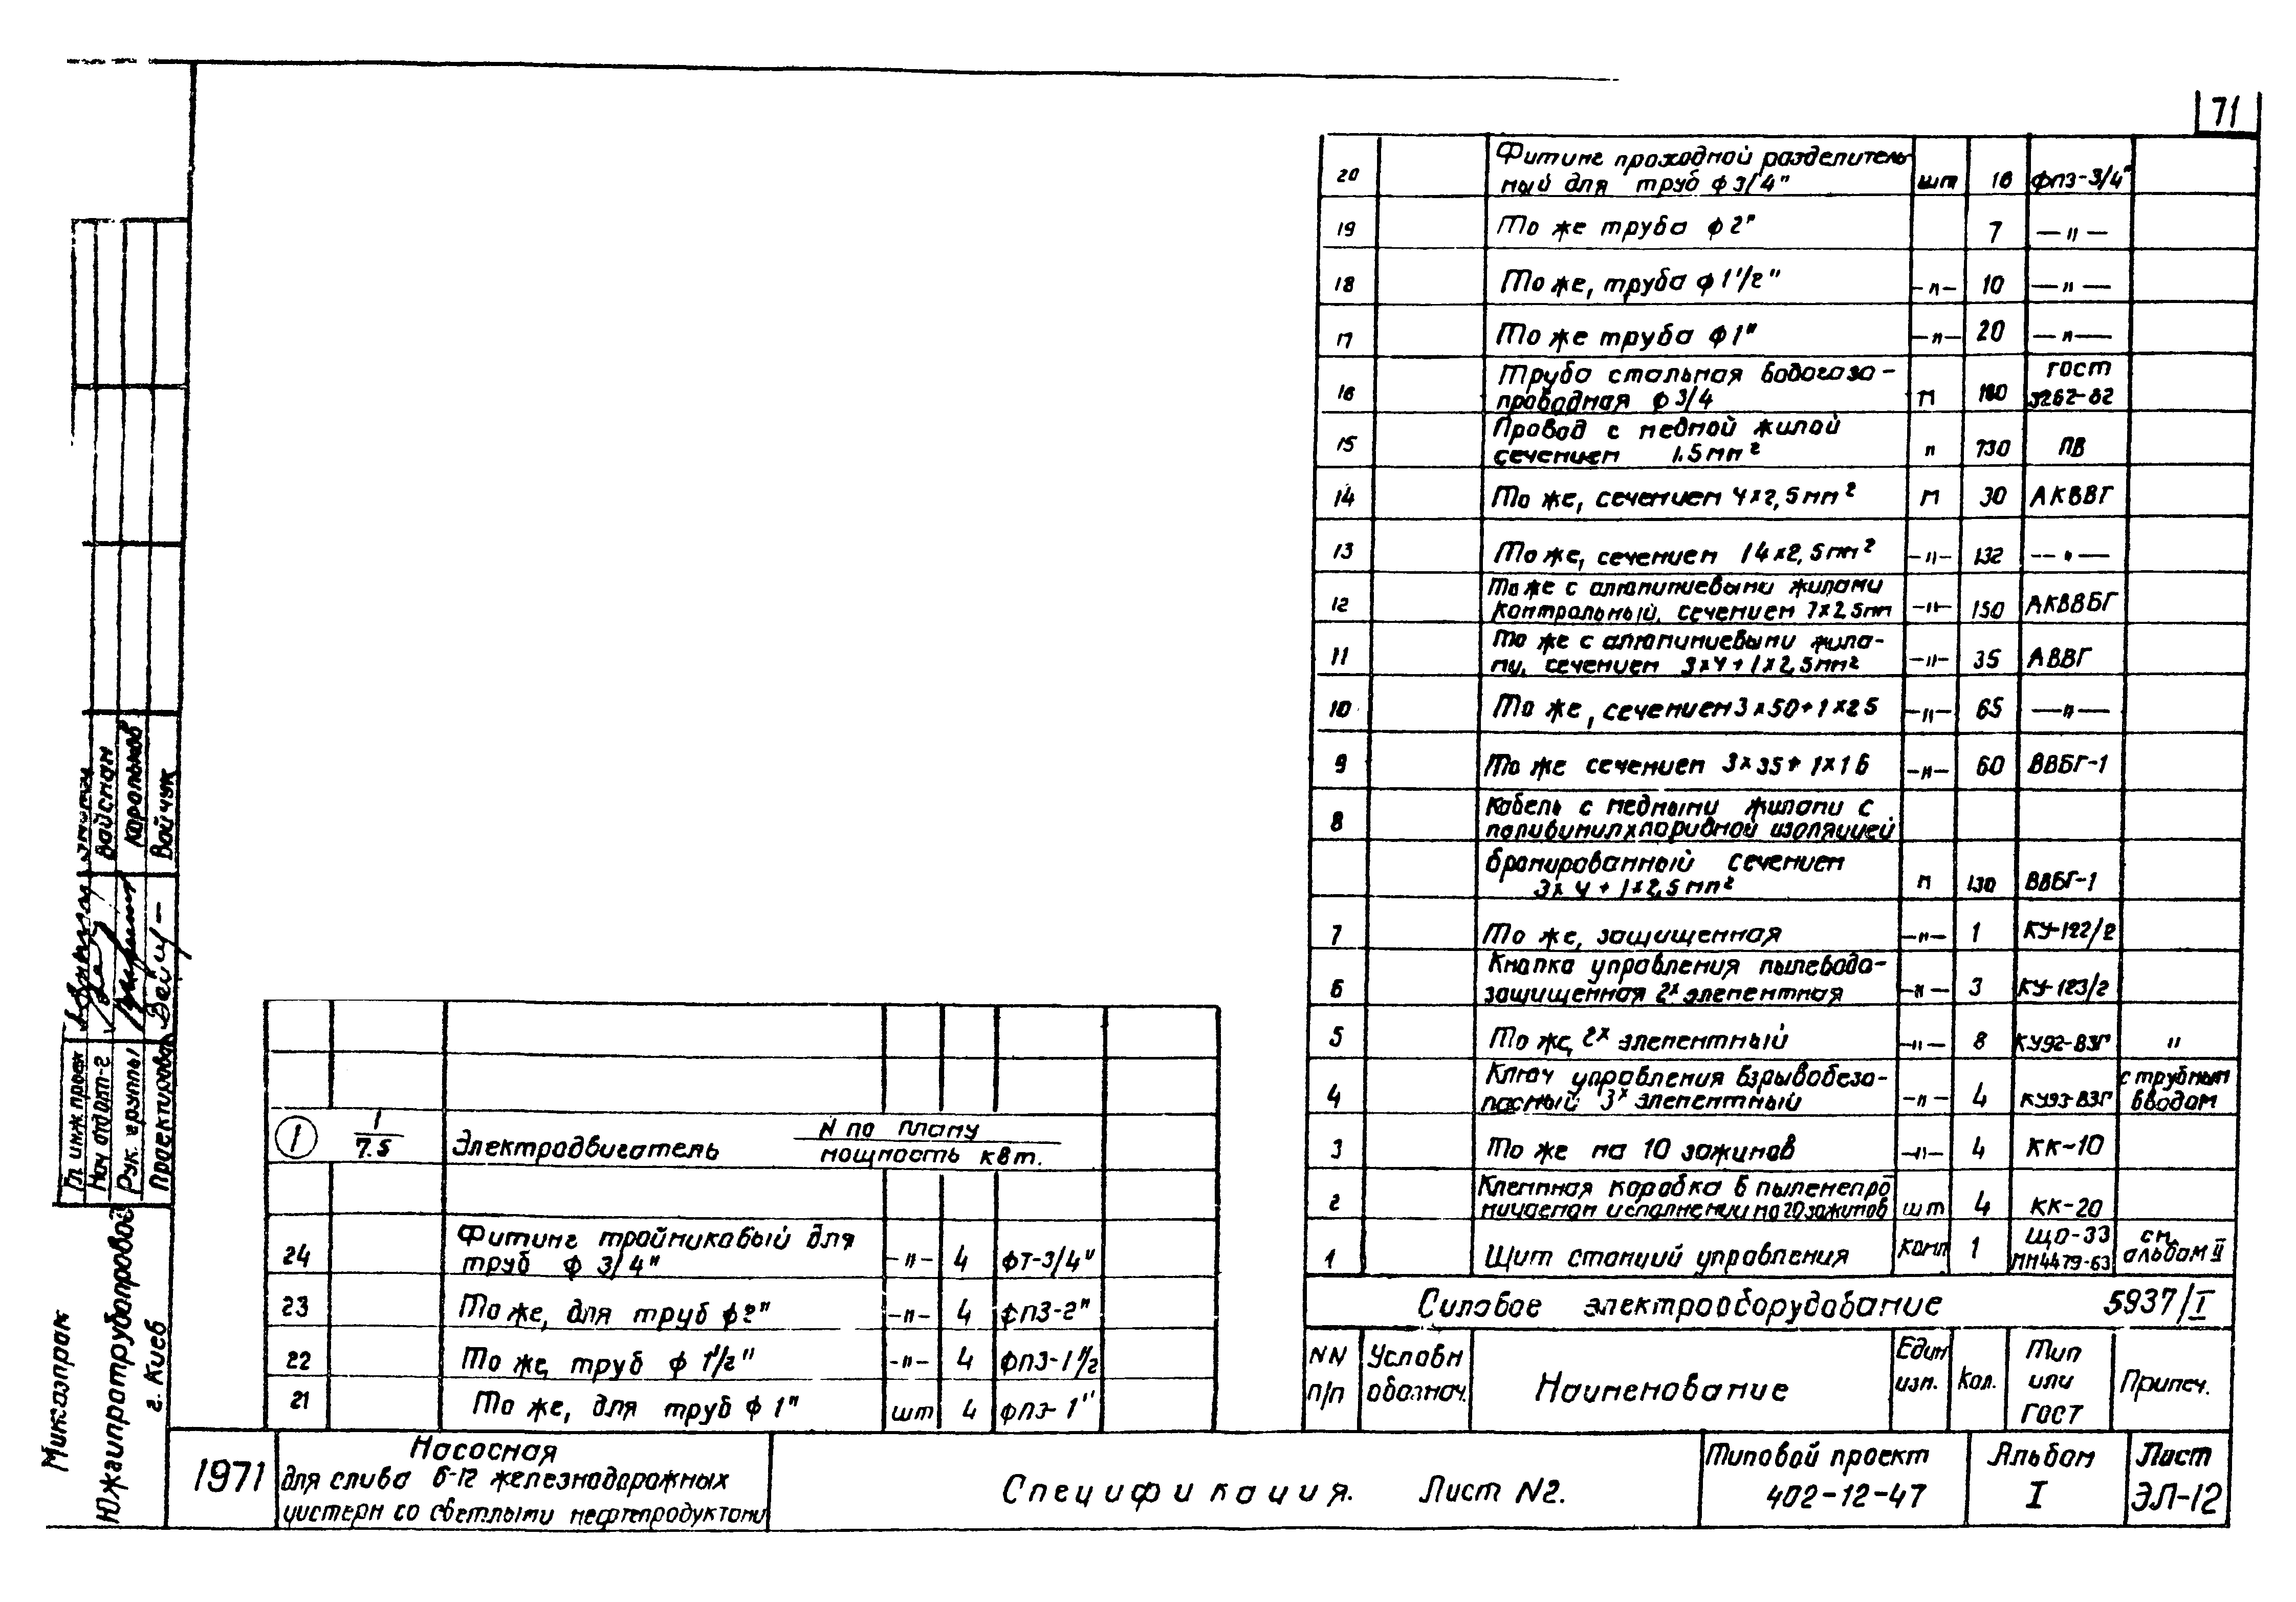 71
20 Фитинг проходной разделитель
ный для труб ф 3/4" шт 16 ФПЗ-3/4"
19 То же труба ф 2" 7 —"—
18 То же, труба ф 1 1/2" —"— 10 —"—
17 То же труба ф 1" —"— 20 —"—
16 Труба стальная водогазо- ГОСТ
проводная ф 3/4 м 180 3262-62
15 Провод с медной жилой
сечением 1.5 мм² " 730 ПВ
14 То же, сечением 4x2,5 мм² м 30 АКВВГ
13 То же, сечением 14x2,5 мм² —"— 132 —"—
12 То же с алюминиевыми жилами
контрольный, сечением 7x2,5мм —"— 150 АКВВБГ
11 То же с алюминиевыми жила-
ми, сечением 3x4+1x2,5мм² —"— 35 АВВГ
10 То же, сечением 3x50+1x25 —"— 65 —"—
9 То же сечением 3x35+1x16 —"— 60 ВВБГ-1
8 Кабель с медными жилами с
поливинилхлоридной изоляцией
бронированный сечением
3x4+1x2,5 мм² м 130 ВВБГ-1
7 То же, защищенная —"— 1 КУ-122/2
6 Кнопка управления пылеводо-
защищенная 2х элементная —"— 3 КУ-123/2
5 То же, 2х элементный —"— 8 КУ92-ВЗГ "
4 Ключ управления взрывобезо- с трубным
пасный 3х элементный —"— 4 КУ93-ВЗГ вводом
3 То же на 10 зажимов —"— 4 КК-10
2 Клеммная коробка в пыленепро
ницаемом исполнении на 20 зажимов шт 4 КК-20
1 Щит станций управления компл 1 ЩО-33 МН4479-63 см. альбом II
Силовое электрооборудование 5937/I
NN п/п Условн обознач. Наименование Един изм. Кол. Тип или ГОСТ Примеч.
1 1/7.5 Электродвигатель N по плану / мощность квт.
24 Фитинг тройниковый для
труб ф 3/4" —"— 4 ФТ-3/4"
23 То же, для труб ф 2" —"— 4 ФПЗ-2"
22 То же, труб ф 1 1/2" —"— 4 ФПЗ-1 1/2"
21 То же, для труб ф 1" шт 4 ФПЗ-1"
1971
Насосная
для слива 6-12 железнодорожных
цистерн со светлыми нефтепродуктами
Спецификация. Лист N2.
Типовой проект
402-12-47
Альбом
I
Лист
ЭЛ-12
Гл. инж. проек
Нач отдот-2 Вайсман
Рук. группы Корольков
Проектировал Войчук
Мингазпром
Южгипротрубопровод
г. Киев